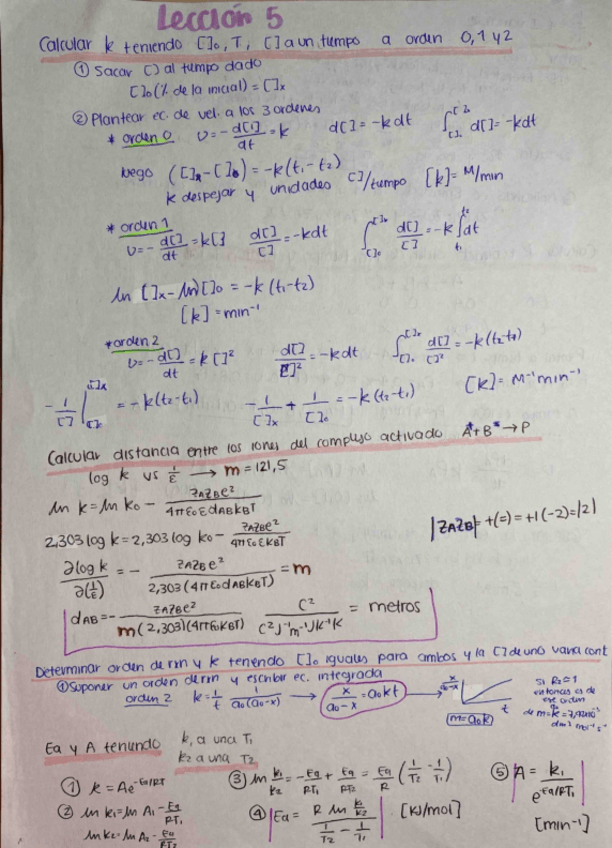 Lección 5
Calcular k teniendo []₀, T, [] a un tiempo a orden 0, 1 y 2
① Sacar [] al tiempo dado
[]₀ (% de la inicial) = []ₓ
② Plantear ec. de vel. a los 3 ordenes
* orden 0 v = - d[]/dt = k d[] = -k dt ∫ d[] = -kdt
luego ([]ₓ - []₀) = -k (t₁ - t₂)
k despejar y unidades []/tiempo [k] = M/min
* orden 1
v = - d[]/dt = k[] d[]/[] = -kdt ∫ d[]/[] = -k ∫ dt
ln []ₓ - ln []₀ = -k (t₁ - t₂)
[k] = min⁻¹
* orden 2
v = - d[]/dt = k []² d[]/[]² = -k dt ∫ d[]/[]² = -k (t₂-t₁)
- 1/[] | = -k (t₂-t₁) - 1/[]ₓ + 1/[]₀ = -k (t₂-t₁) [k] = M⁻¹ min⁻¹
Calcular distancia entre los iones del complejo activado A* + B* → P
log k vs 1/ε → m = 121,5
ln k = ln k₀ - zAzBe²/4πε₀εdABkBT
|zAzB| = +(=) = +1(-2) = |2|
2,303 log k = 2,303 log k₀ - zAzBe²/4πε₀εkBT
∂log k/∂(1/ε) = - zAzBe²/2,303 (4πε₀dABkBT) = m
dAB = - zAzBe²/m(2,303)(4πε₀kBT) C²/C²J⁻¹m⁻¹JK⁻¹K = metros
Determinar orden de rxn y k teniendo []₀ iguales para ambos y la [] de uno varia cont
① Suponer un orden de rxn y escribir ec. integrada
orden 2 k = 1/t 1/a₀(a₀-x) → x/a₀-x = a₀kt → x/a₀-x t m=a₀k
si R² ≈ 1
entonces es de
ese orden
Ea y A teniendo k₁ a una T₁
k₂ a una T₂
① k = Ae^-Ea/RT ③ ln k₁/k₂ = - Ea/RT₁ + Ea/RT₂ = Ea/R (1/T₂ - 1/T₁) ⑤ A = k₁/e^-Ea/RT₁
② ln k₁ = ln A₁ - Ea/RT₁ ④ Ea = R ln k₁/k₂ / 1/T₂ - 1/T₁ [KJ/mol]
ln k₂ = ln A₂ - Ea/RT₂ [min⁻¹]